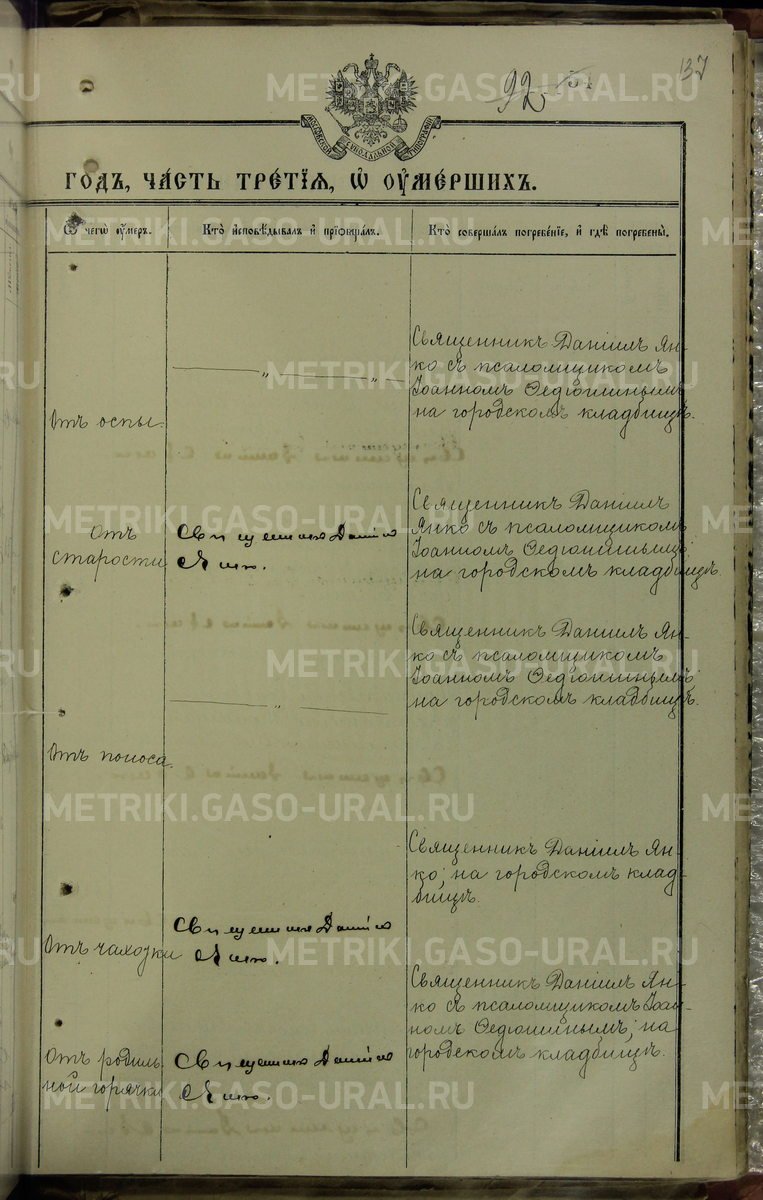 137
92
МОСКОВСКОЙ СѴНОДАЛЬНОЙ ТИПОГРАФІИ
ГОДЪ, ЧА́СТЬ ТРЕ́ТІѦ, Ѡ҆ ОУ҆МЕ́РШИХЪ.
Ѿ чегѡ̀ оу҆́меръ.
Кто̀ и҆сповѣ́дывалъ и҆ прїѡбща́лъ.
Кто̀ соверша́лъ погребе́нїе, и҆ гдѣ̀ погребены̀.
Отъ оспы.
— „ — „ —
Священникъ Даніилъ Ян-
ко съ псаломщикомъ
Іоанномъ Ѳедюшинымъ
на городскомъ кладбищѣ.
Отъ
старости
Священникъ Даніилъ
Янко.
Священникъ Даніилъ
Янко съ псаломщикомъ
Іоанномъ Ѳедюшинымъ;
на городскомъ кладбищѣ.
Отъ поноса.
— „ —
Священникъ Даніилъ Ян-
ко съ псаломщикомъ
Іоанномъ Ѳедюшинымъ;
на городскомъ кладбищѣ.
Отъ чахотки
Священникъ Даніилъ
Янко.
Священникъ Даніилъ Ян-
ко; на городскомъ клад-
бищѣ.
Отъ родиль-
ной горячки
Священникъ Даніилъ
Янко.
Священникъ Даніилъ Ян-
ко съ псаломщикомъ Іоан-
номъ Ѳедюшинымъ; на
городскомъ кладбищѣ.
METRIKI.GASO-URAL.RU